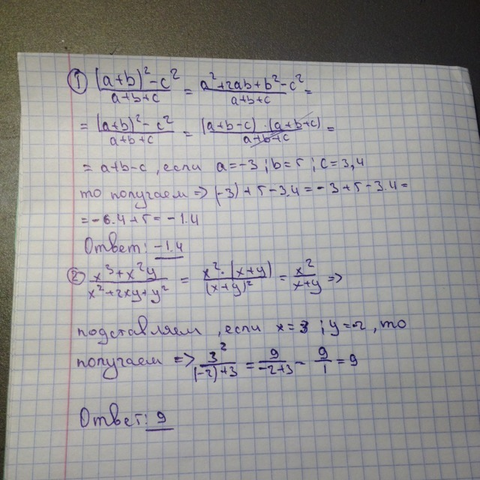 ① (a+b)²-c² / a+b+c = a²+2ab+b²-c² / a+b+c =
= (a+b)²-c² / a+b+c = (a+b-c)·(a+b+c) / a+b+c =
= a+b-c, если a=-3; b=5; c=3,4
то получаем => (-3)+5-3.4=-3+5-3.4=
=-6.4+5=-1.4
Ответ: -1.4
② x³+x²y / x²+2xy+y² = x²·(x+y) / (x+y)² = x² / x+y =>
подставляем, если x=3; y=-2, то
получаем => 3² / (-2)+3 = 9 / -2+3 - 9 / 1 = 9
Ответ: 9